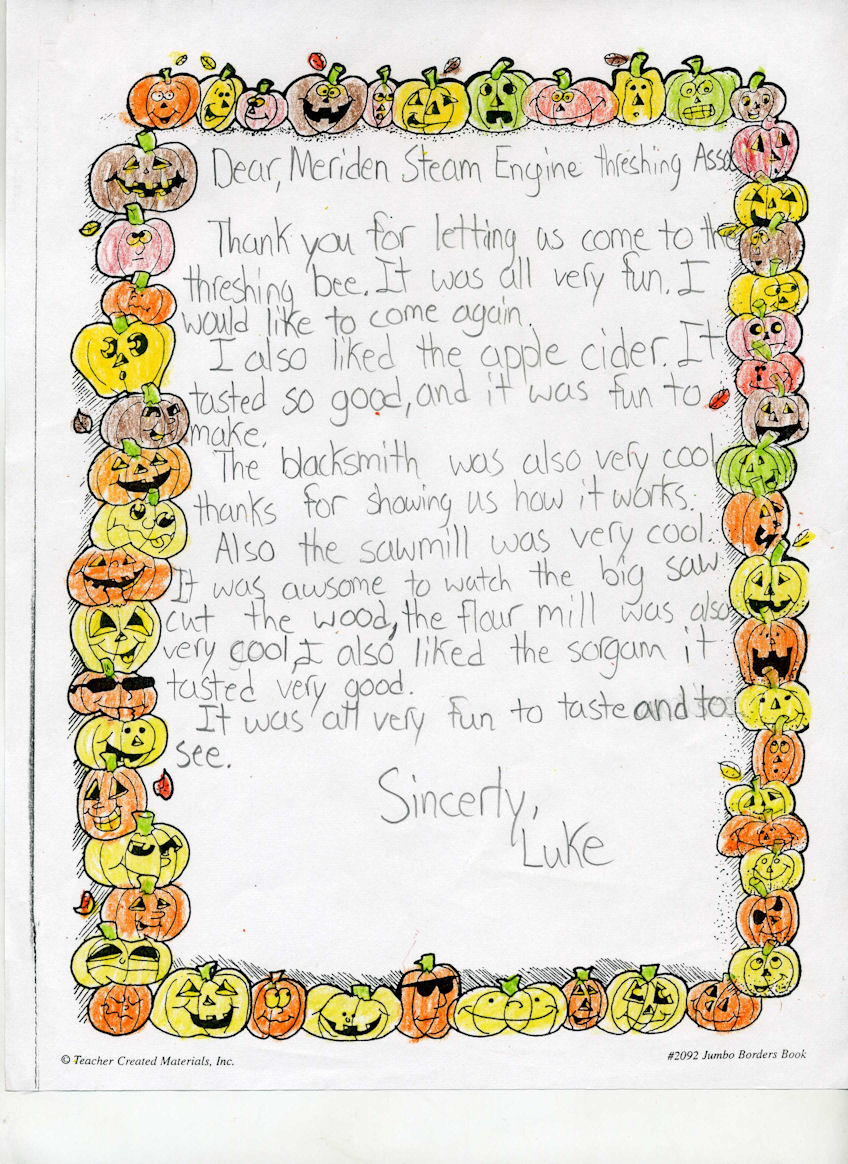 Dear, Meriden Steam Engine threshing Asso
Thank you for letting us come to the
threshing bee. It was all very fun. I
would like to come again.
I also liked the apple cider. It
tasted so good, and it was fun to
make.
The blacksmith was also very cool
thanks for showing us how it works.
Also the sawmill was very cool.
It was awsome to watch the big saw
cut the wood, the flour mill was also
very cool, I also liked the sorgam it
tasted very good.
It was all very fun to taste and to
see.
Sincerly,
Luke
© Teacher Created Materials, Inc.
#2092 Jumbo Borders Book